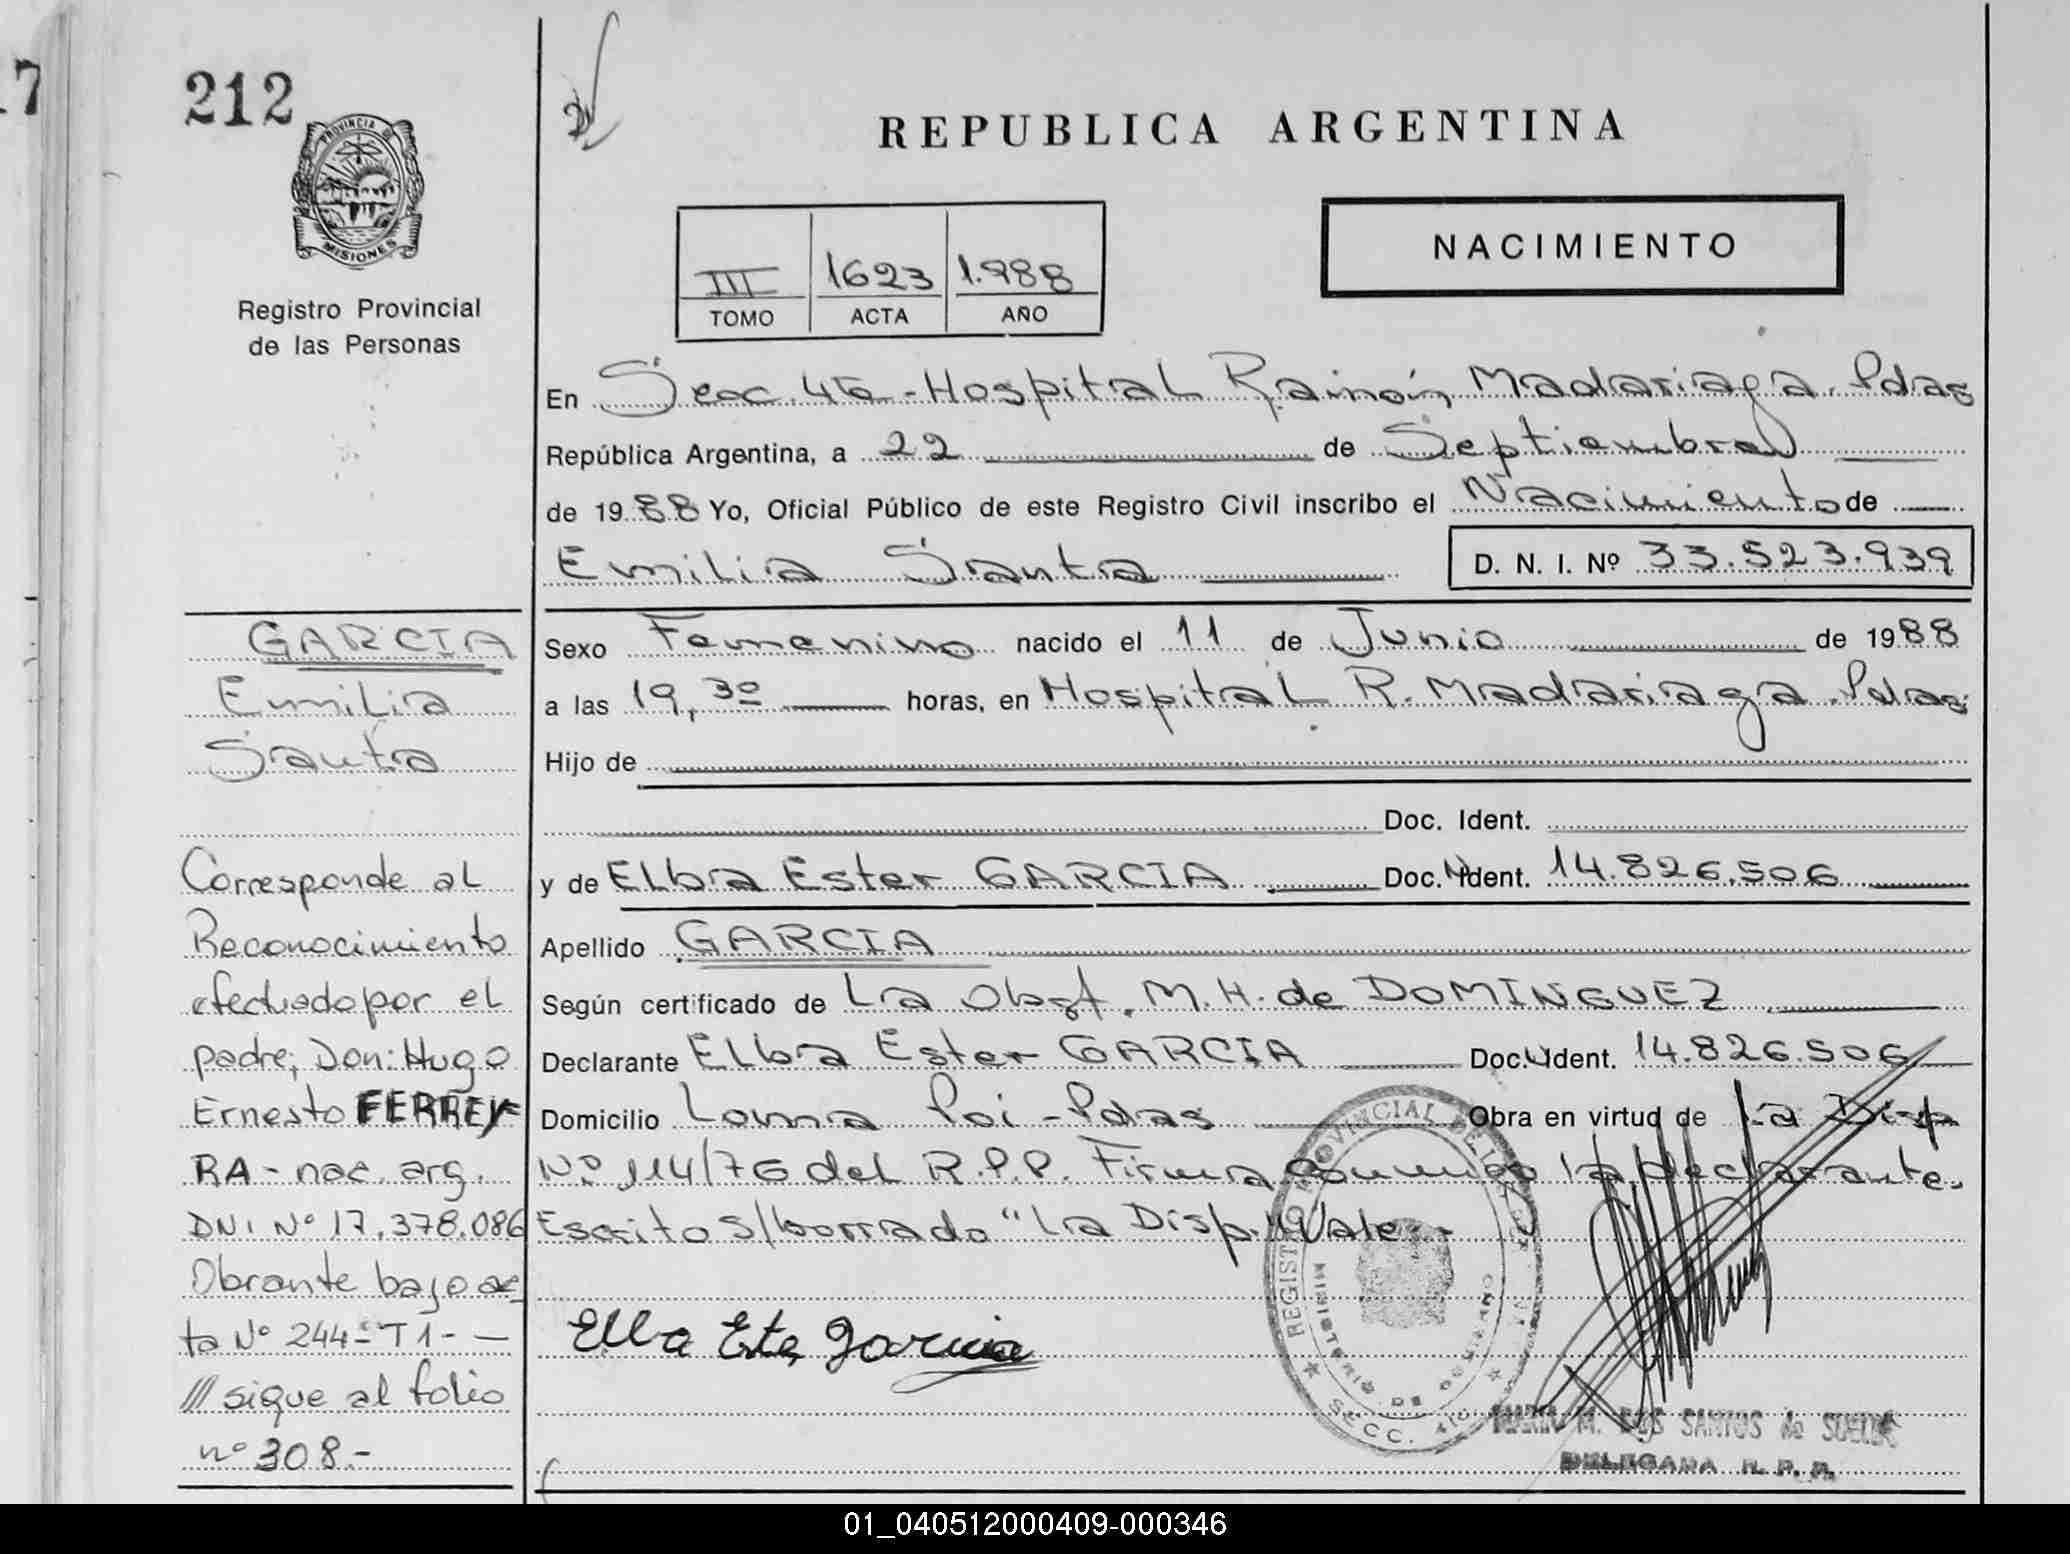 212
PROVINCIA DE
MISIONES
Registro Provincial
de las Personas
REPUBLICA ARGENTINA
NACIMIENTO
III 1623 1.988
TOMO ACTA AÑO
En Secc. 4ta - Hospital Ramón Madariaga. Pdas
República Argentina, a 22 de Septiembre
de 1988 Yo, Oficial Público de este Registro Civil inscribo el Nacimiento de
Emilia Santa D. N. I. Nº 33.523.939
Sexo Femenino nacido el 11 de Junio de 1988
a las 19,30 horas, en Hospital R. Madariaga. Pdas.
Hijo de
Doc. Ident.
y de Elba Ester GARCIA Doc. Ident. 14.826.506
Apellido GARCIA
Según certificado de La Obst. M. H. de DOMINGUEZ
Declarante Elba Ester GARCIA Doc. Ident. 14.826.506
Domicilio Loma Poi - Pdas Obra en virtud de La Disp
Nº 114/76 del R.P.P. Firma conmigo la declarante.
Escrito s/borrado "La Disp." Vale.-
Elba Este Garcia
MARIA M. DOS SANTOS de
DELEGADA R. P. P.
GARCIA
Emilia
Santa
Corresponde al
Reconocimiento
efectuado por el
padre, Don: Hugo
Ernesto FERREY-
RA - nac. arg.
DNI Nº 17.378.086
Obrante bajo ac-
ta Nº 244 - T 1 -
/// sigue al folio
nº 308.-
REGISTRO PROVINCIAL DE LAS
MINISTERIO DE GOBIERNO
SECC. 4ta
01_040512000409-000346